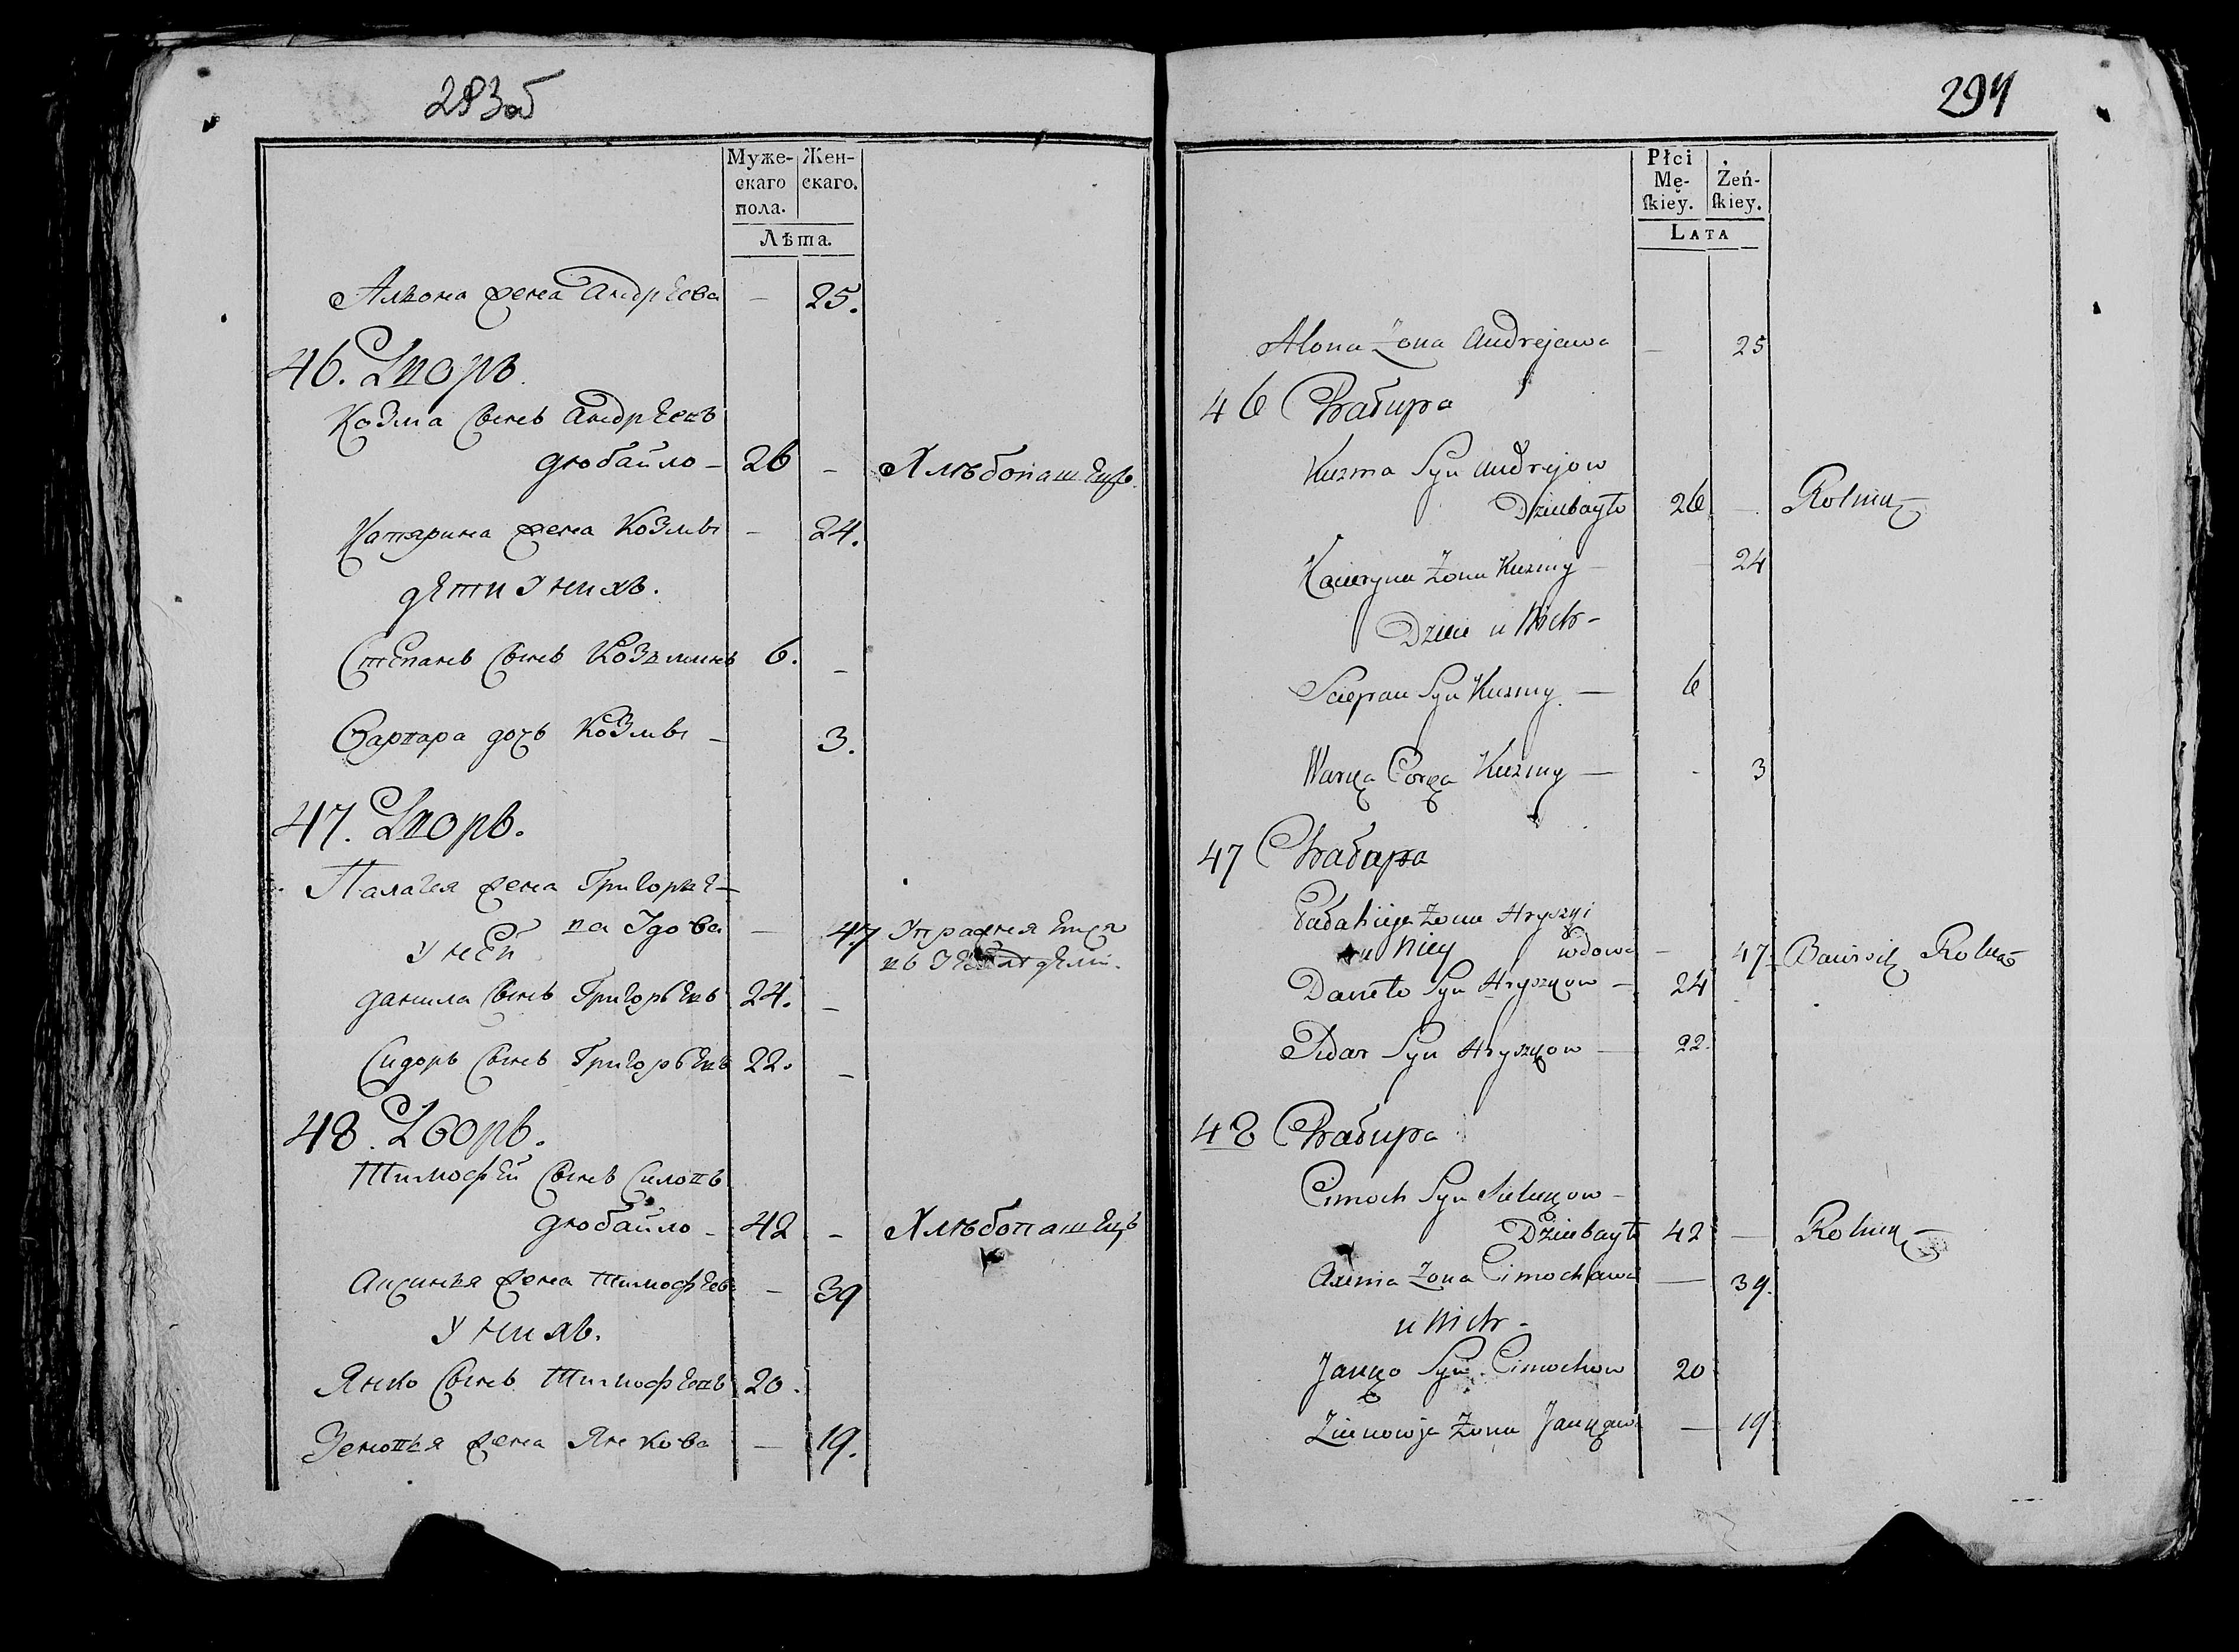 283об
Муже-
скаго
пола.
Жен-
скаго.
Лѣта.
Алвона жена Андрѣева — 25.
46. Дворъ.
Козма сынъ Андрѣевъ
дзюбайло — 26 — Хлѣбопашецъ.
Катярина жена Козмы — 24.
дети У нихъ.
Степанъ сынъ Козминъ 6. —
Варвара дочь Козмы — 3.
47. Дворъ.
Палагея жена Григорье-
ва Удова — 47 Упражняется
У ней
въ
данила сынъ Григорьевъ 24. —
Сидоръ сынъ Григорьевъ 22. —
48. Дворъ.
Тимофей сынъ Силовъ
дзюбайло — 42 — Хлѣбопашецъ
Аксинья жена Тимофѣева — 39
У нихъ.
Янко сынъ Тимофѣевъ 20.
Зеновья жена Янкова — 19.
294
Płci
Mę-
ſkiey.
Żeń-
ſkiey.
LATA
Alona Żona Andrejawa — 25
46 Chałupa
Kuzma Syn Andrejow
Dziubayło 26 — Rolnik
Kacieryna Żona Kuzmy — 24
Dzieci u Nich —
Sciepan Syn Kuzmy — 6
Warka Corka Kuzmy — 3
47 Chałupa
Żona Hryszki
u Niey wdowa — 47 Bawi się Rolną
Daniło Syn Hryszkow — 24
Sidar Syn Hryszkow — 22.
48 Chałupa
Cimoch Syn
Dziubayło 42 — Rolnik —
Axinia Żona Cimochawa — 39.
u Nich —
Janko Syn Cimochow 20
Zienowja Żona Jankawa — 19